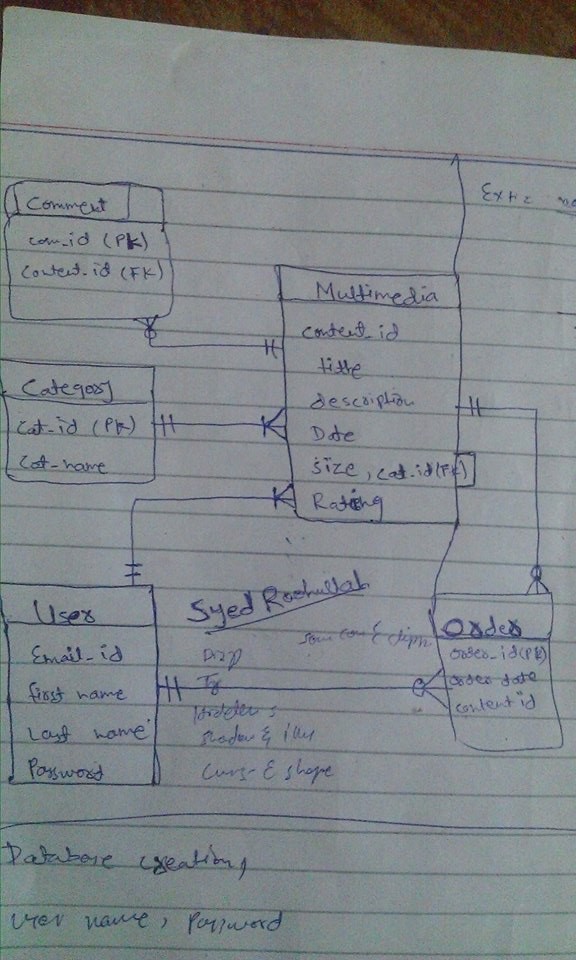 Ext:
Comment
com_id (PK)
Content_id (FK)
Multimedia
content_id
title
description
Date
size, cat.id(FK)
Rating
Category
Cat_id (PK)
Cat_name
User
Email_id
first name
Last name
Password
Syed Roohullah
Order
order_id(PK)
order date
content id
shadow &
Curv- & shape
Database creation,
User name, Password